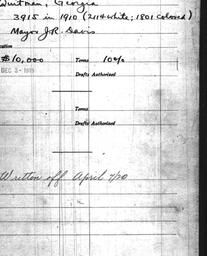 Quitman, Georgia
3915 in 1910 (2114 white; 1801 colored)
Mayor J.R. Davis
$10,000 Terms 10%
DEC 3 - 1919
Drafts Authorized
Terms
Drafts Authorized
Written off April 7/20